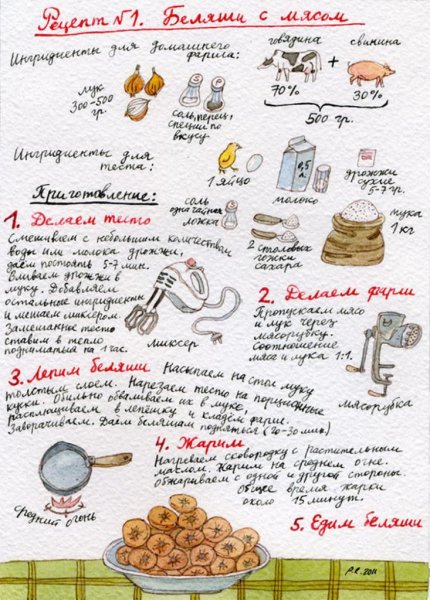 Рецепт №1. Беляши с мясом
Ингридиенты для домашнего
фарша:
говядина
свинина
+
70%
30%
500 гр.
лук
300-500
гр.
соль, перец,
специи по
вкусу
Ингридиенты для
теста:
1 яйцо
0,5
л.
молоко
дрожжи
сухие
5-7 гр.
соль
одна чайная
ложка
2 столовых
ложки
сахара
мука
1 кг
Приготовление:
1. Делаем тесто
Смешиваем с небольшим количеством
воды или молока дрожжи,
даём постоять 5-7 мин.
Вливаем дрожжи в
муку. Добавляем
остальные ингридиенты
и мешаем миксером.
Замешанное тесто
ставим в тепло
подниматься на 1 час.
миксер
2. Делаем фарш
Пропускаем мясо
и лук через
мясорубку.
Соотношение
мяса и лука 1:1.
мясорубка
3. Лепим беляши
Насыпаем на стол муку
толстым слоем. Нарезаем тесто на порционные
куски. Обильно обваливаем их в муке,
расплющиваем в лепёшку и кладём фарш.
Заворачиваем. Даём беляшам подняться (20-30 мин.)
4. Жарим
Нагреваем сковородку с растительным
маслом. Жарим на среднем огне.
обжариваем с одной и другой стороны
Общее время жарки
около 15 минут.
Средний огонь
5. Едим беляши
р.е. 2011